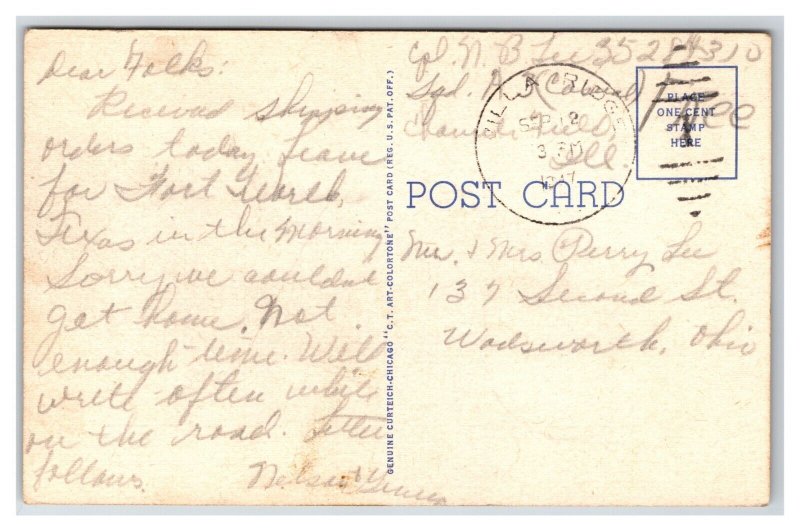 Dear Folks:
Received shipping
orders today. Leave
for Fort Worth,
Texas in the morning
Sorry we couldn't
get home. Not
enough time. Will
write often while
on the road. Letter
follows.
Nelson &
GENUINE CURTEICH-CHICAGO "C.T. ART-COLORTONE" POST CARD (REG. U.S. PAT. OFF.)
Cpl. N. B. Lee 35284310
Sqd. A
Field Free
Ill.
RIDGE
SEP 2
3 PM
PLACE
ONE CENT
STAMP
HERE
POST CARD
Mr. & Mrs. Perry Lee
137 Second St.
Wadsworth, Ohio